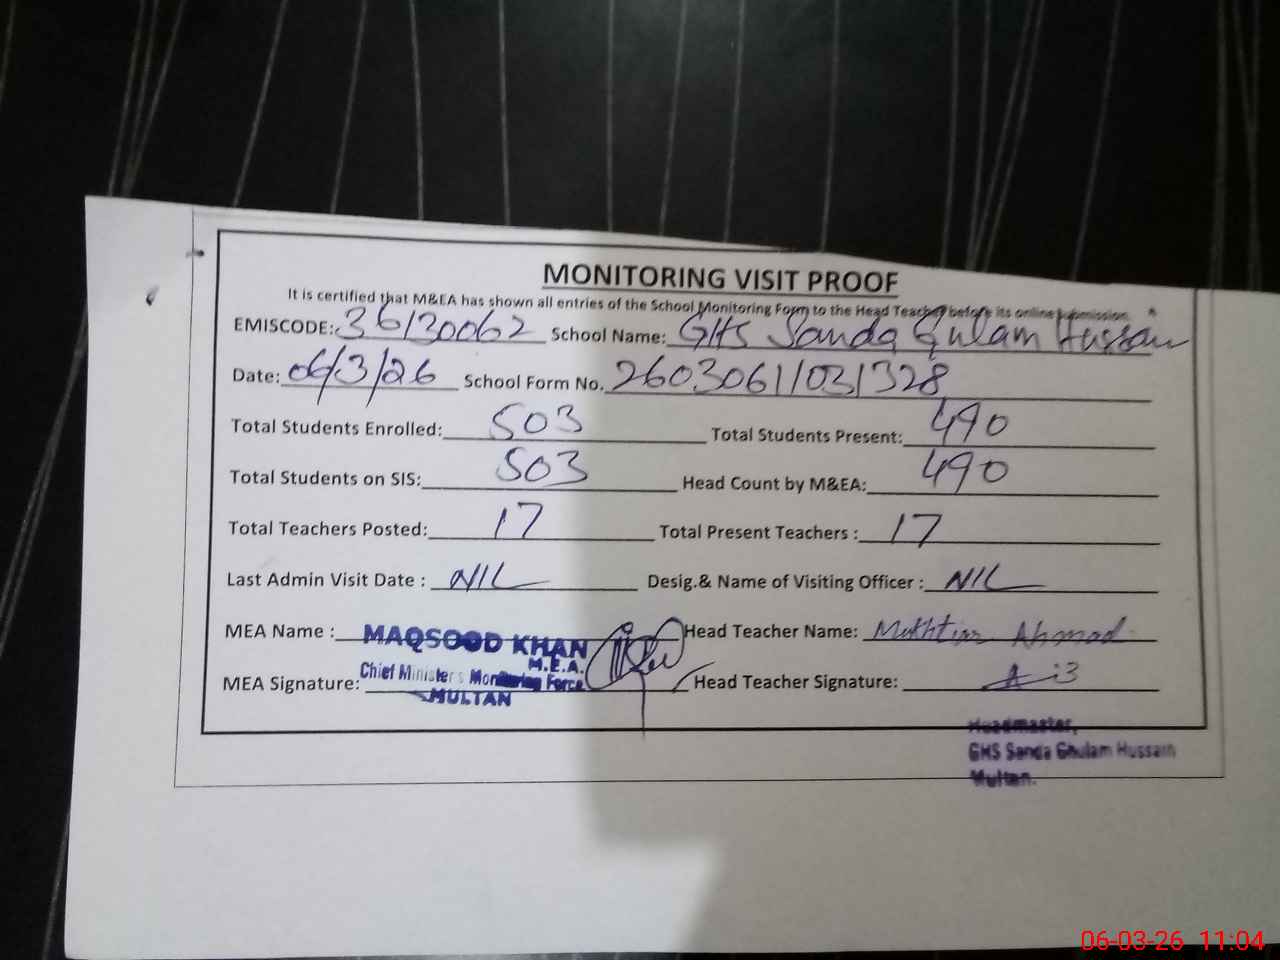 MONITORING VISIT PROOF
It is certified that M&EA has shown all entries of the School Monitoring Form to the Head Teacher before its online submission.
EMISCODE: 36130062 School Name: GHS Sanda Gulam Hussan
Date: 06/3/26 School Form No. 2603061103/328
Total Students Enrolled: 503 Total Students Present: 490
Total Students on SIS: 503 Head Count by M&EA: 490
Total Teachers Posted: 17 Total Present Teachers : 17
Last Admin Visit Date : NIL Desig.& Name of Visiting Officer : NIL
MEA Name : MAQSOOD KHAN Head Teacher Name: Mukhtiar Ahmad
M.E.A.
Chief Minister's Monitoring Force
MEA Signature: MULTAN Head Teacher Signature:
Headmaster,
GHS Sanda Ghulam Hussain
Multan.
06-03-26 11:04